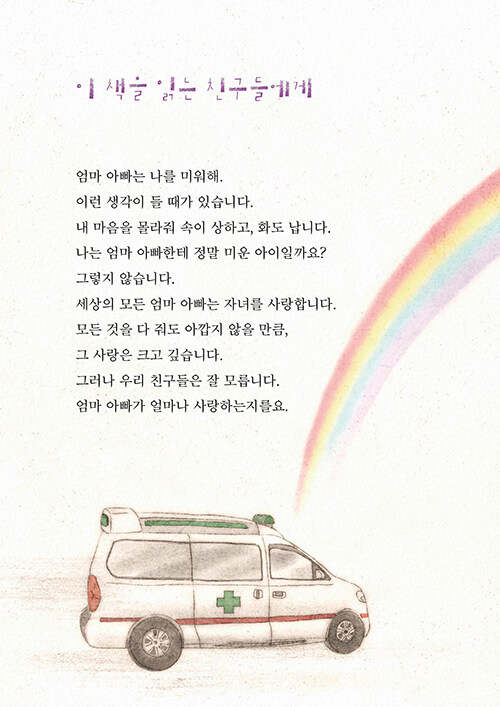 이 책을 읽는 친구들에게
엄마 아빠는 나를 미워해.
이런 생각이 들 때가 있습니다.
내 마음을 몰라줘 속이 상하고, 화도 납니다.
나는 엄마 아빠한테 정말 미운 아이일까요?
그렇지 않습니다.
세상의 모든 엄마 아빠는 자녀를 사랑합니다.
모든 것을 다 줘도 아깝지 않을 만큼,
그 사랑은 크고 깊습니다.
그러나 우리 친구들은 잘 모릅니다.
엄마 아빠가 얼마나 사랑하는지를요.